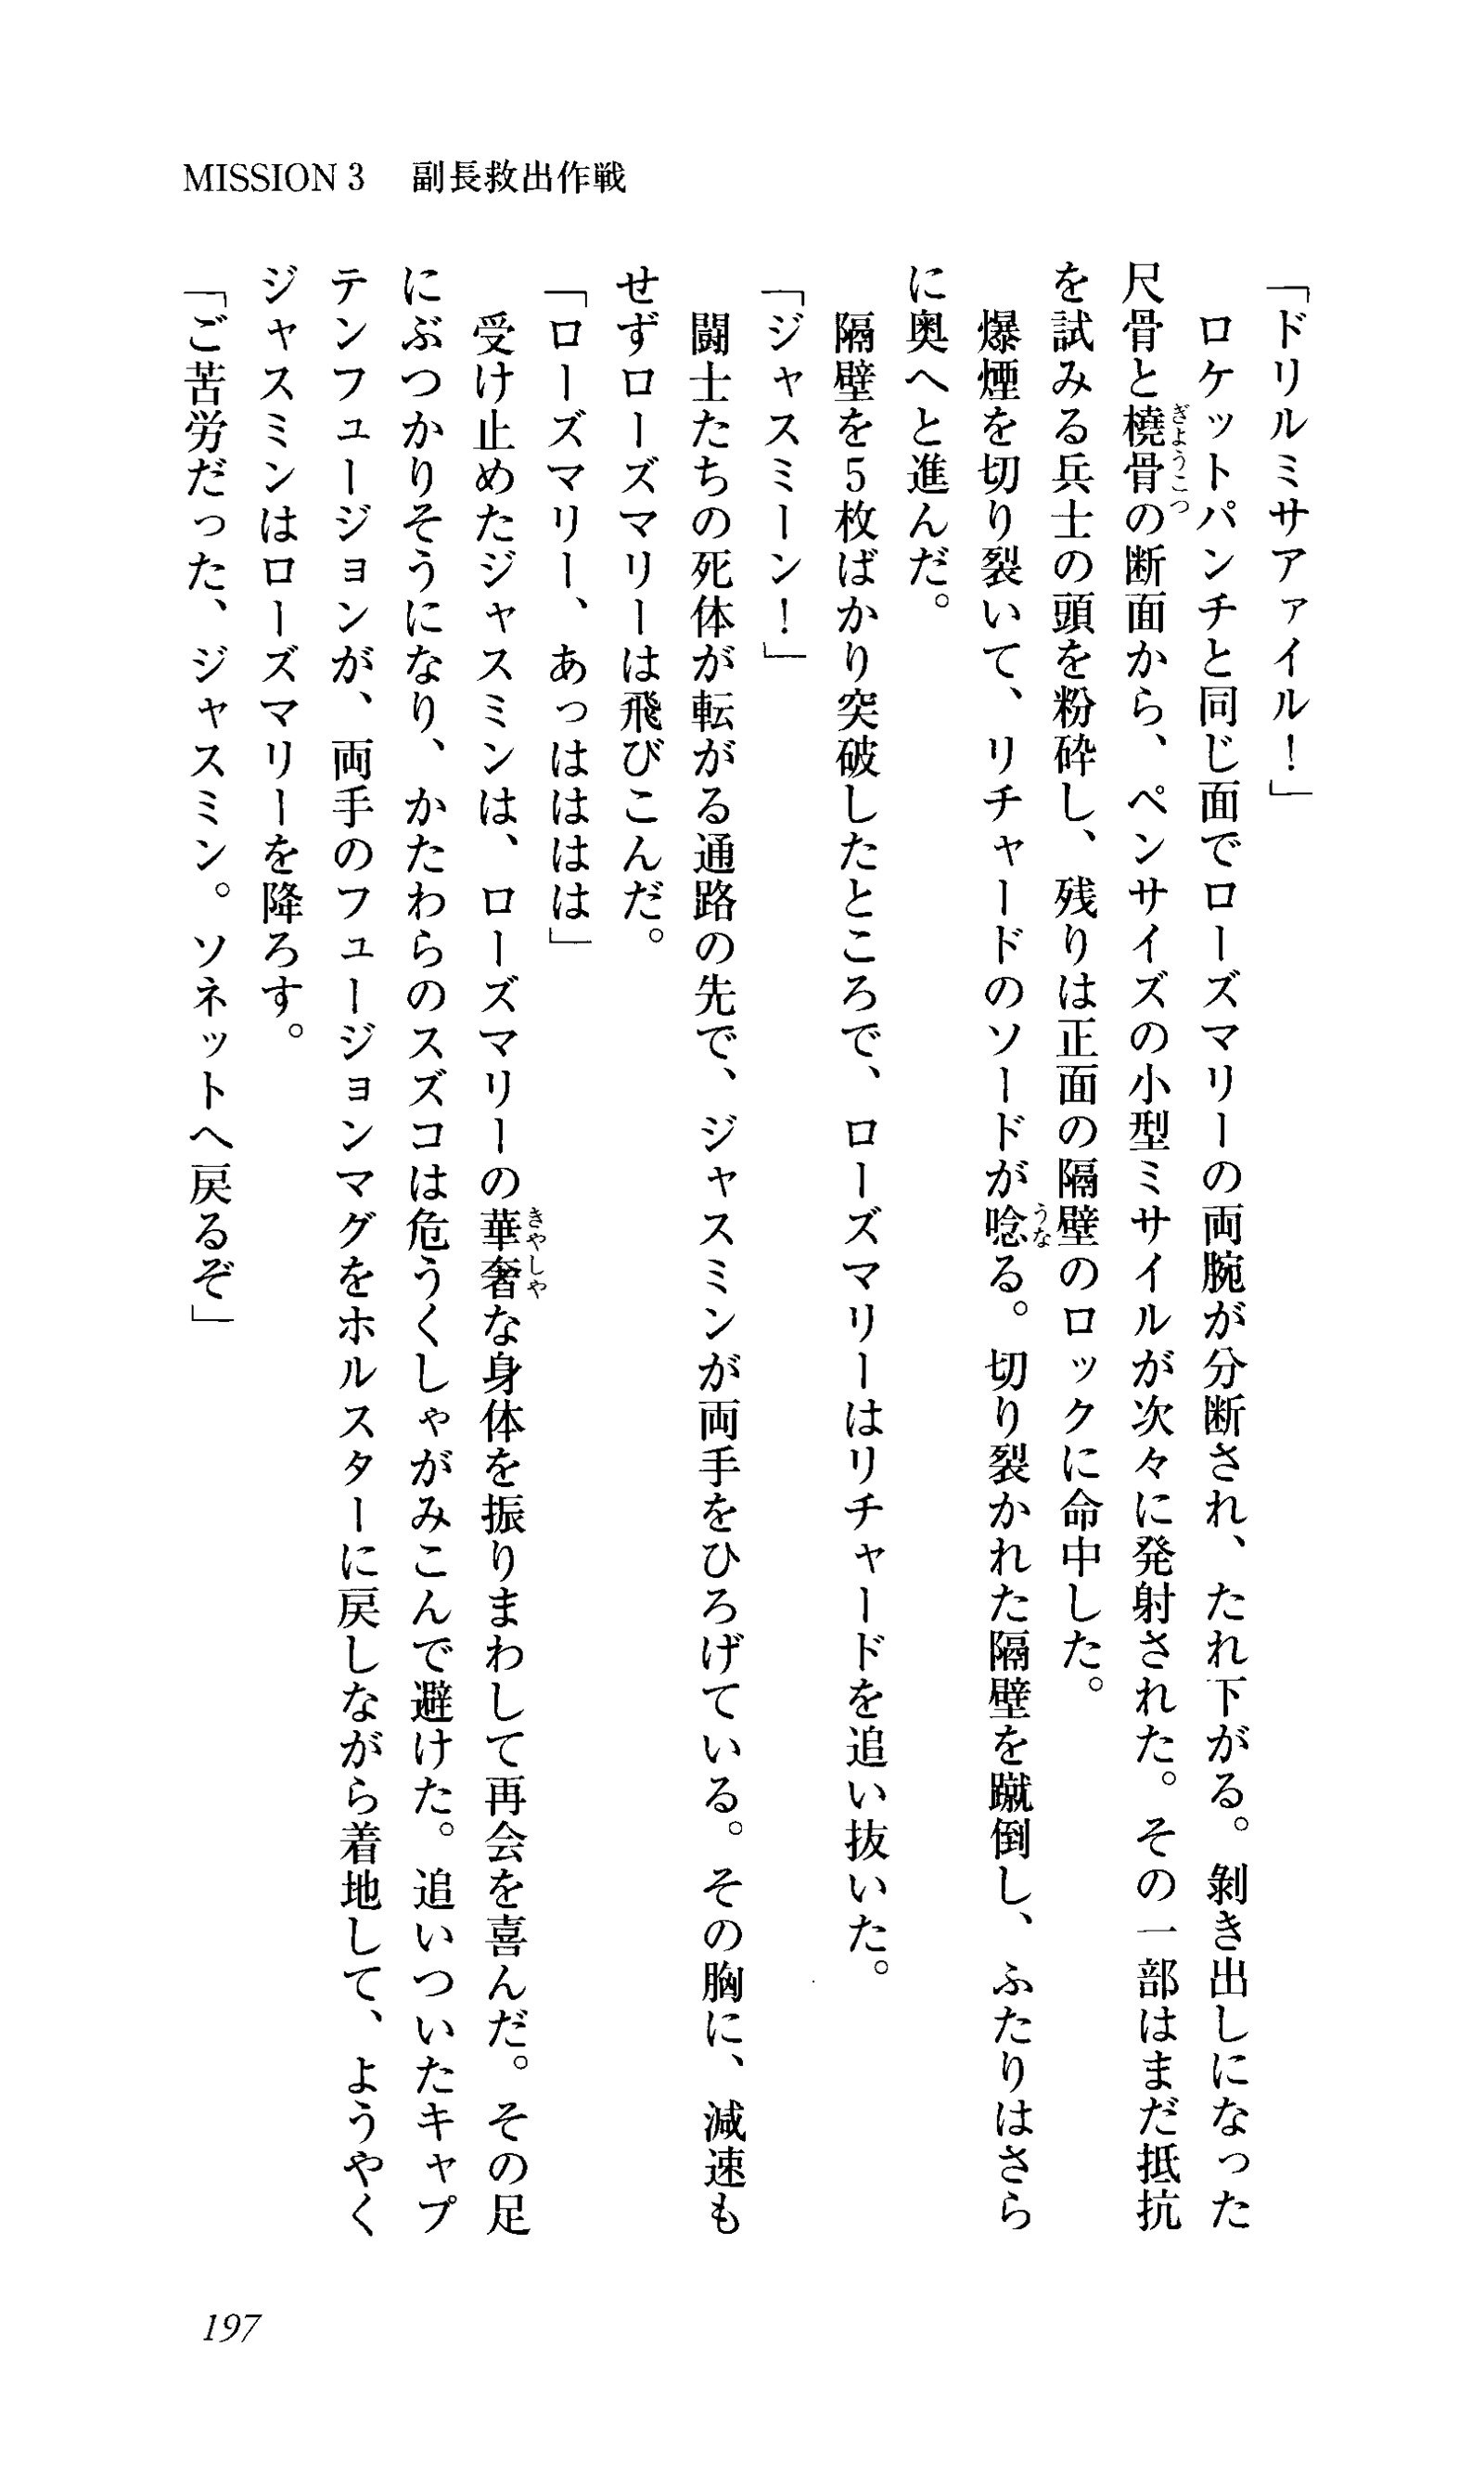 MISSION 3 副長救出作戦
「ドリルミサアァイル!」
ロケットパンチと同じ面でローズマリーの両腕が分断され、たれ下がる。剝き出しになった
尺骨と橈骨の断面から、ペンサイズの小型ミサイルが次々に発射された。その一部はまだ抵抗
を試みる兵士の頭を粉砕し、残りは正面の隔壁のロックに命中した。
爆煙を切り裂いて、リチャードのソードが唸る。切り裂かれた隔壁を蹴倒し、ふたりはさら
に奥へと進んだ。
隔壁を5枚ばかり突破したところで、ローズマリーはリチャードを追い抜いた。
「ジャスミーン!」
闘士たちの死体が転がる通路の先で、ジャスミンが両手をひろげている。その胸に、減速も
せずローズマリーは飛びこんだ。
「ローズマリー、あっはははは」
受け止めたジャスミンは、ローズマリーの華奢な身体を振りまわして再会を喜んだ。その足
にぶつかりそうになり、かたわらのスズコは危うくしゃがみこんで避けた。追いついたキャプ
テンフュージョンが、両手のフュージョンマグをホルスターに戻しながら着地して、ようやく
ジャスミンはローズマリーを降ろす。
「ご苦労だった、ジャスミン。ソネットへ戻るぞ」
ぎようこつ
うな
きやしや
197